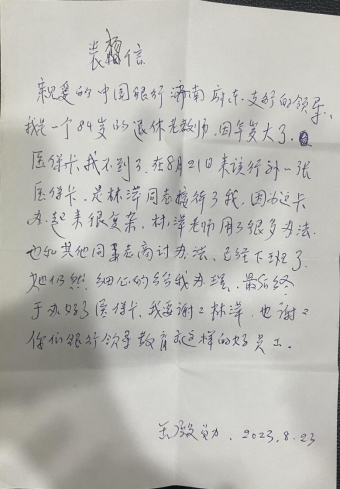 表扬信
亲爱的中国银行济南府东支行的领导:
我是一个84岁的退休老教师,因年岁大了,
医保卡找不到了,在8月21日来该行办一张
医保卡,是林萍同志接待了我,因为这卡
办起来很复杂,林萍老师用了很多办法
也和其他同事商讨办法,已经下班了
她仍然细心的给我办理,最后终
于办好了医保卡,我要谢谢林萍,也谢谢
你们银行领导教育出这样的好员工。
2023.8.23